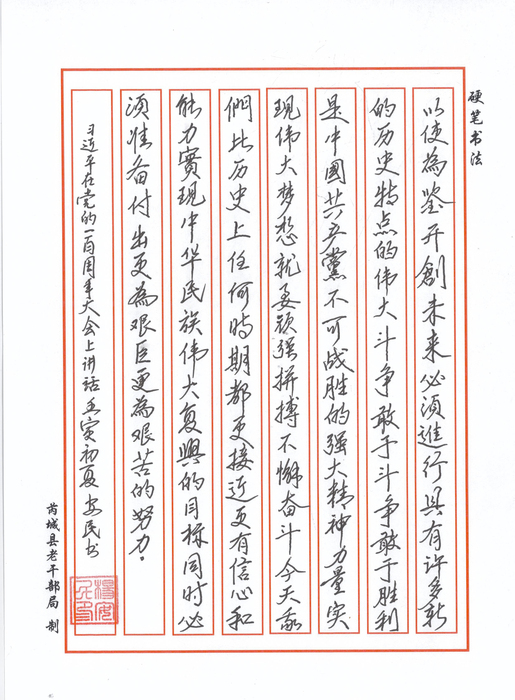 硬笔书法
以使為鉴开創未来必须進行具有许多新
的历史特点的伟大斗争敢于斗争敢于胜利
是中國共产黨不可战胜的强大精神力量实
现伟大梦想就要顽强拼搏不懈奋斗今天我
們比历史上任何時期都更接近更有信心和
能力實现中华民族伟大复興的目标同时必
须准备付出更為艰巨更為艰苦的努力。
习近平在党的一百周年大会上讲话壬寅初夏安民书
芮城县老干部局 制